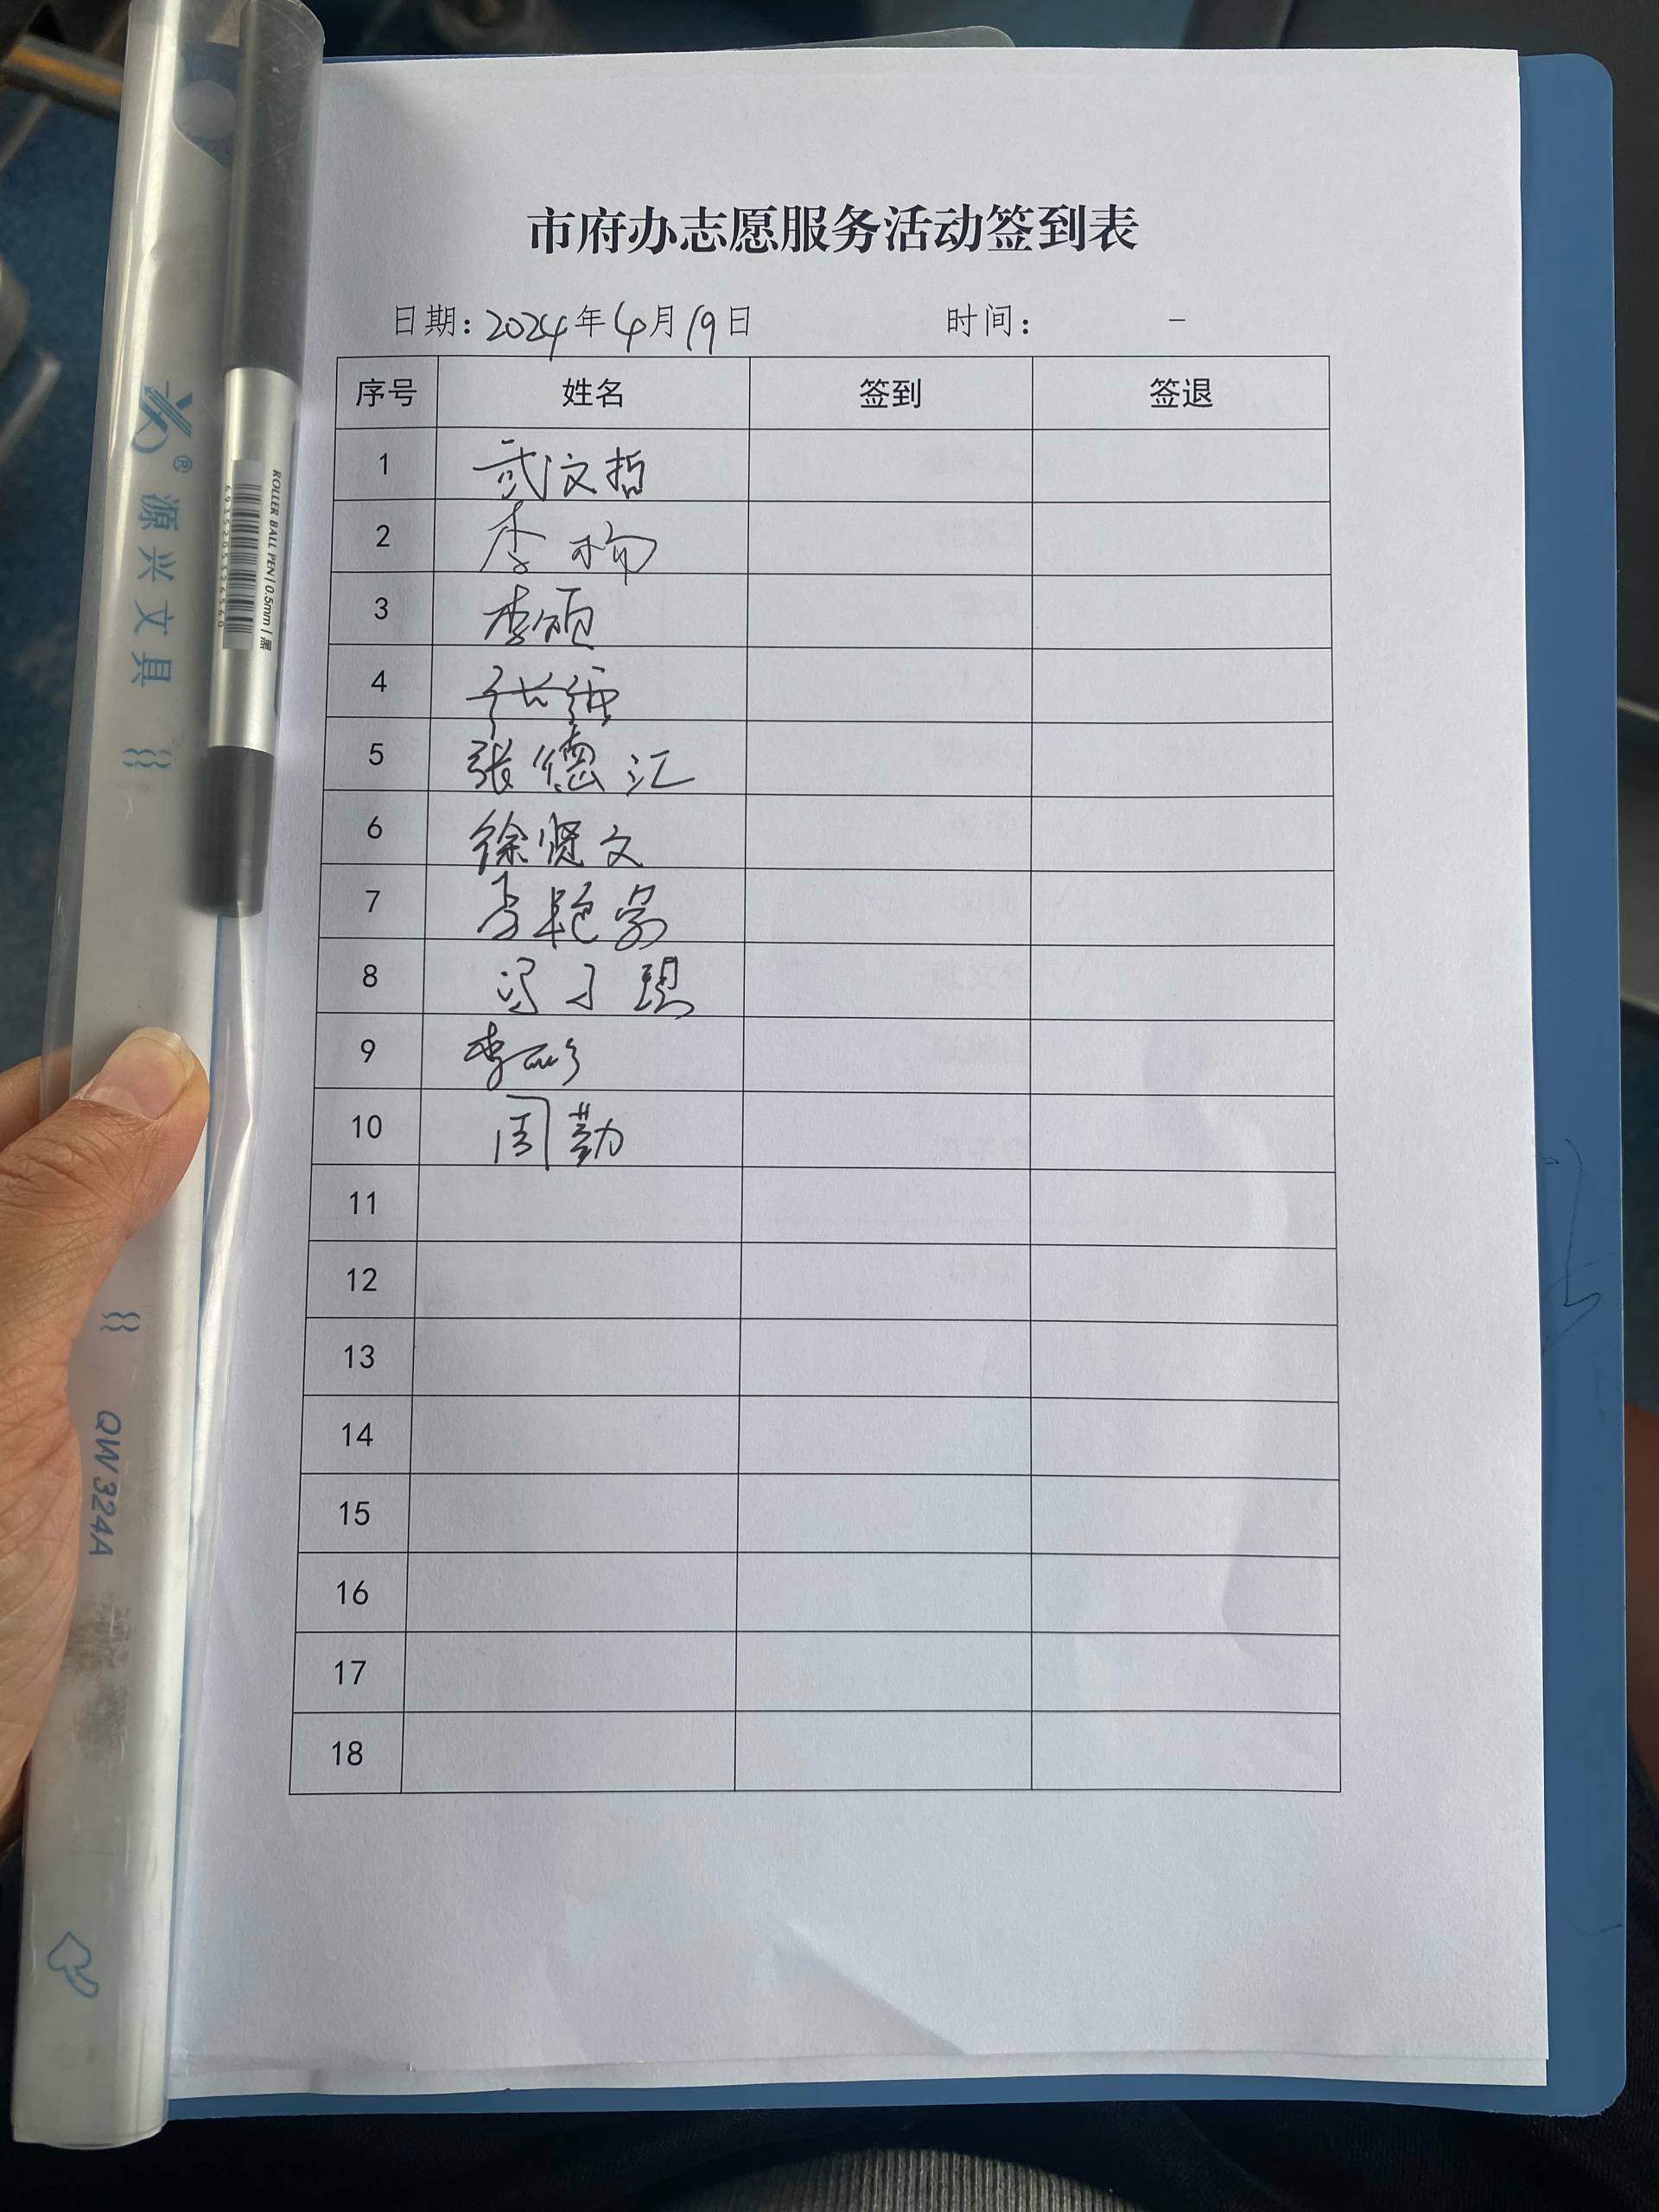 市府办志愿服务活动签到表
日期: 2024年4月19日 时间: –
序号 姓名 签到 签退
1 武文哲
2 李杨
3 李硕
4
5 张德汇
6 徐贤文
7
8 冯子琪
9 李
10 周勤
11
12
13
14
15
16
17
18
源兴文具
QW324A
ROLLER BALL PEN | 0.5mm | 黑
6935205326560